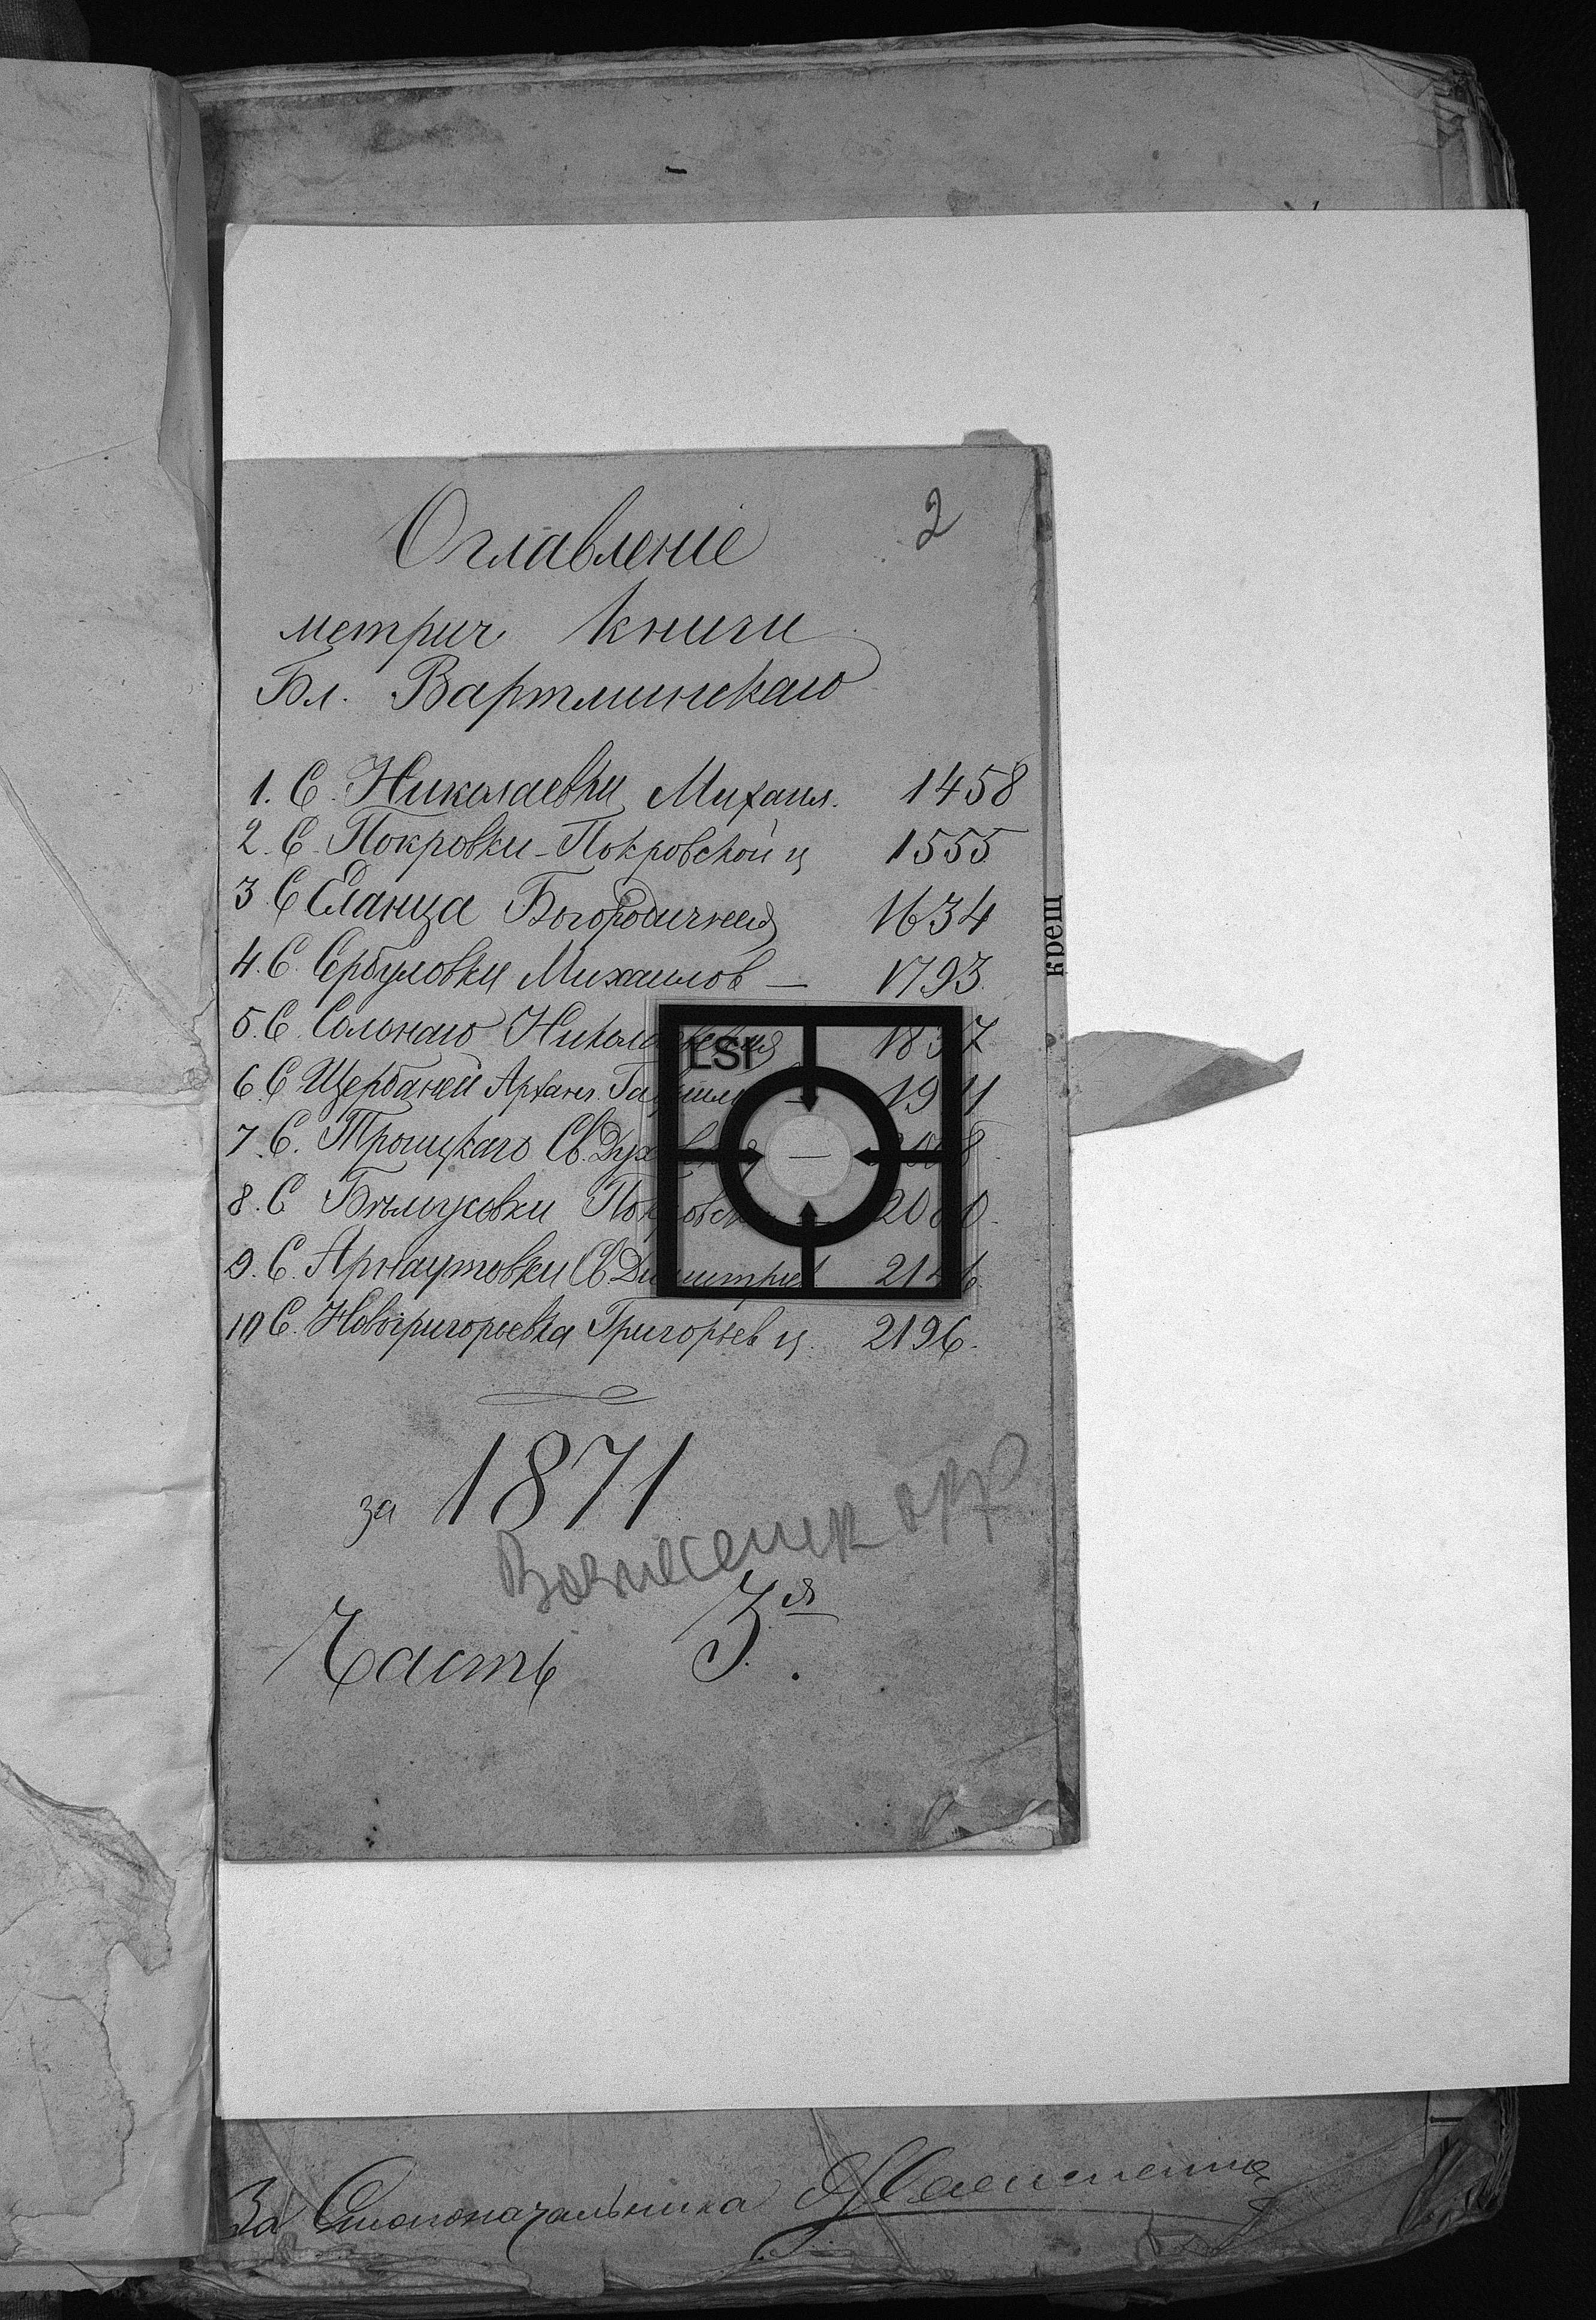 2
Оглавленіе
метрич. книги
Бл. Вартминскаго
1. С. Николаевки Михаил. 1458
2. С. Покровки - Покровской ц 1555
3 С Еланца Богородичная 1634
4. С. Сербуловки Михаилов — 1793.
5. С. Солонаго 1837
6. С Щербаней Арханг.
7. С. Троицкаго Св. Духовская
8. С Бѣлоусовки Покровск. 2080.
9. С. Арнаутовки Св. Димитріев 2146.
10 С. Новогригорьевка Григорьев ц. 2196.
за 1871
Вознесенск
Часть 3я.
креш
LSI
За Столоначальника